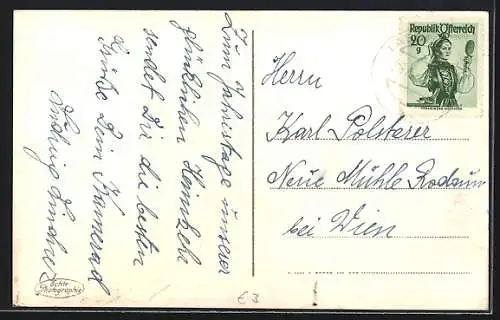 Zum Jahrestage unserer
glücklichen Heimkehr
sendet Dir die besten
Grüße Dein Kamerad
Ludwig
Echte
Photographie
Republik Österreich
20
g
Herrn
Karl Polsterer
Neue Mühle Rodaun
bei Wien
€3